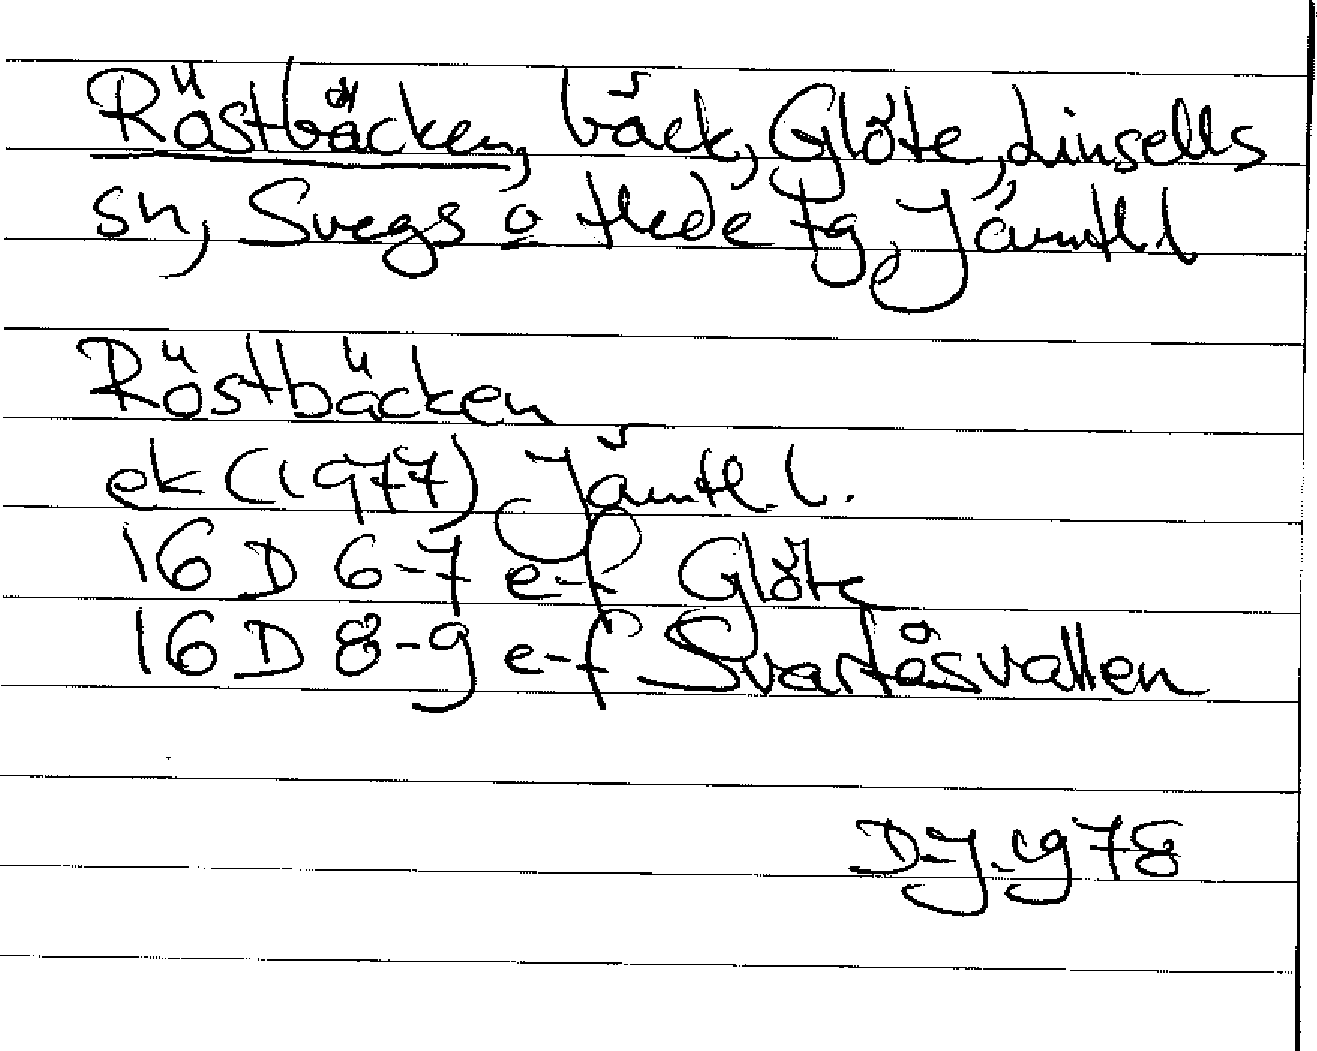 Röstbäcken, bäck, Glöte, Linsells
sn, Svegs o Hede tg, Jämtl l
Röstbäcken
ek (1977) Jämtl. l.
16 D 6-7 e-f Glöte
16 D 8-9 e-f Svartåsvallen
D-J. 1978